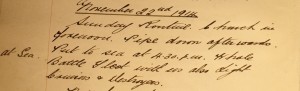 November 22nd 1914
Sunday Routine. Church in
forenoon. Pipe down afterwards.
at Sea. Put to sea at 4.30.p.m. Whole
Battle Fleet with us also Light
Cruisers & Destroyers.